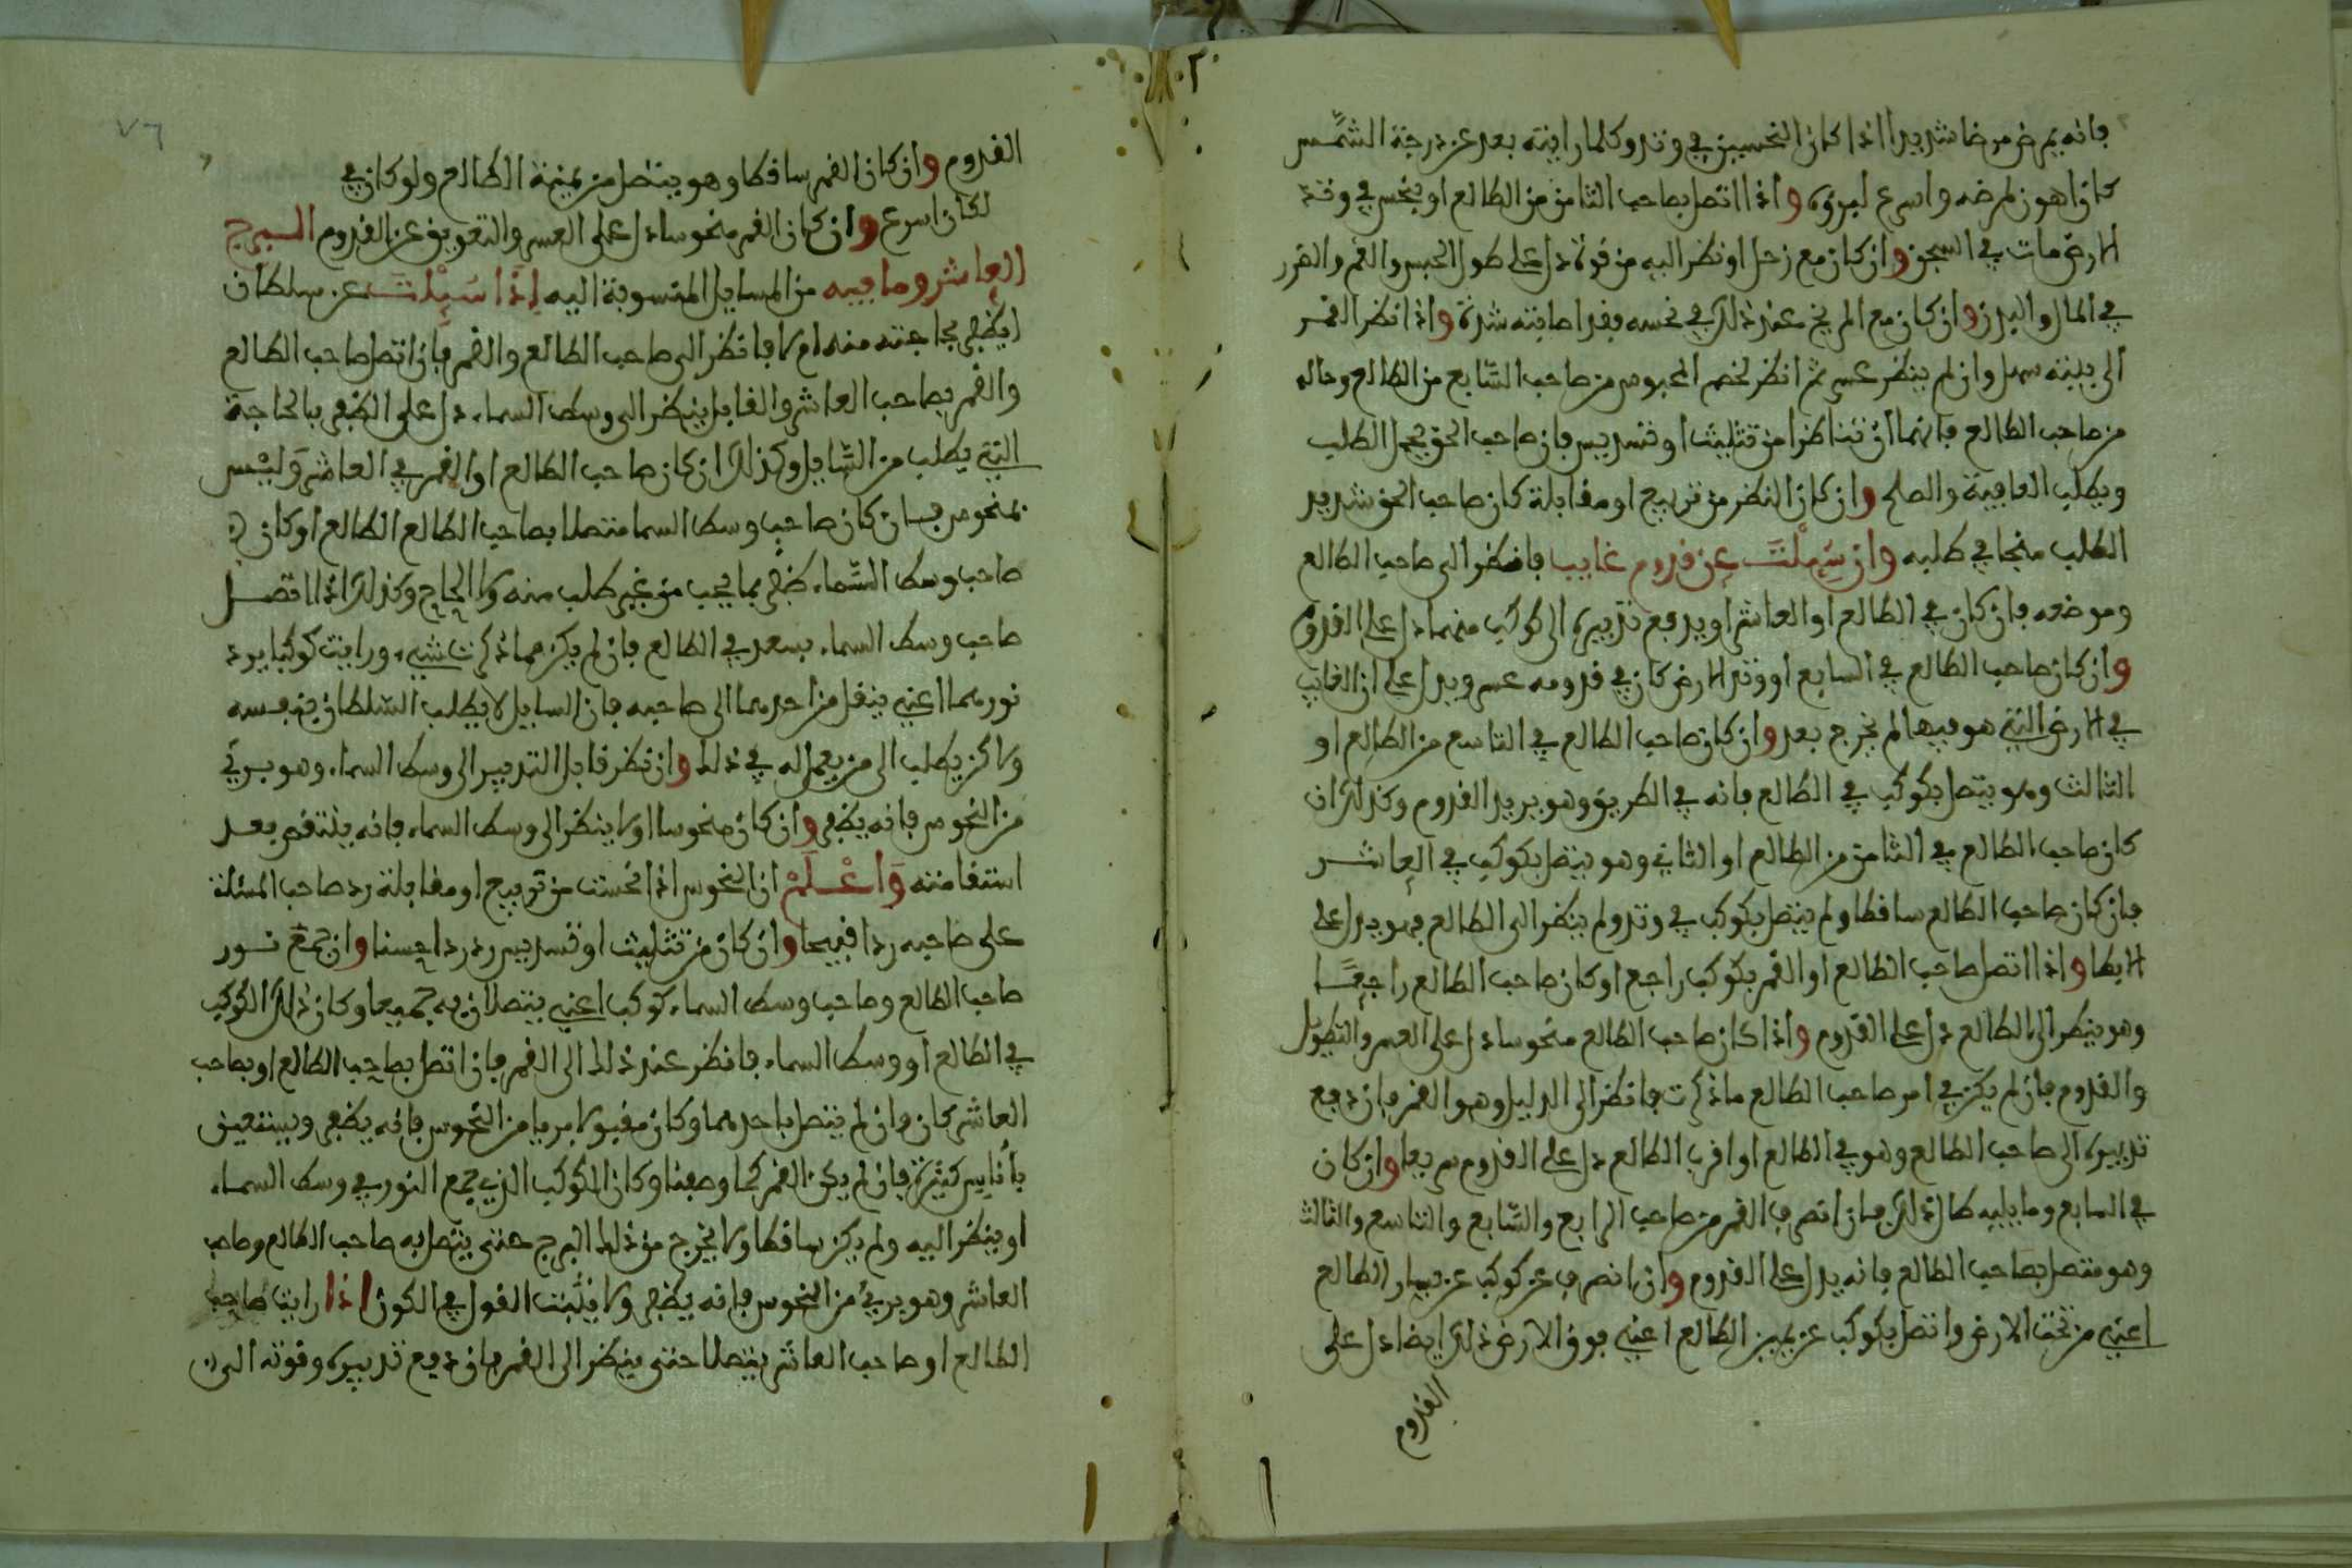 فانه يمرض مرضا شديدا اذا كان النحسين في وتد وكلما رايته بعد عن درجة الشمس
كان اهون لمرضه واسرع لبروه واذا اتصل بصاحب الثامن من الطالع او بنحس في وتد
الارض مات في السجن وان كان مع زحل او نظر اليه من قوة دل على طول الحبس والغم والضرر
في المال والبدن وان كان مع المريخ عند ذلك في نحسه فقد اصابته شدة واذا نظر القمر
الى بيته سهل وان لم ينظر عسر ثم انظر لخصم المحبوس من صاحب السابع من الطالع وحاله
من صاحب الطالع فانهما ان تناظرا من تثليث او تسديس فان صاحب الحق يجمل الطلب
ويطلب العافية والصلح وان كان النظر من تربيع او مقابلة كان صاحب الحق شديد
الطلب منجا في طلبه وان سئلت عن قدوم غايب فانظر الى صاحب الطالع
وموضعه فان كان في الطالع او العاشر او يدفع تدبيره الى كوكب منهما دل على القدوم
وان كان صاحب الطالع في السابع او وتد الارض كان في قدومه عسر ويدل على ان الغايب
في الارض التي هو فيها لم يخرج بعد وان كان صاحب الطالع في التاسع من الطالع او
الثالث وهو يتصل بكوكب في الطالع فانه في الطريق وهو يريد القدوم وكذلك ان
كان صاحب الطالع في الثامن من الطالع او الثاني وهو يتصل بكوكب في العاشر
فان كان صاحب الطالع ساقطا ولم يتصل بكوكب في وتد ولم ينظر الى الطالع فهو يدل على
الابطا واذا اتصل صاحب الطالع او القمر بكوكب راجع او كان صاحب الطالع راجعا
وهو ينظر الى الطالع دل على القدوم واذا كان صاحب الطالع منحوسا دل على العسر والتطويل
والقدوم فان لم يكن في امر صاحب الطالع ما ذكرت فانظر الى الدليل وهو القمر فان دفع
تدبيره الى صاحب الطالع وهو في الطالع او اقرب الطالع دل على القدوم سريعا وان كان
في السابع وما يليه كان ذلك فان انصرف القمر من صاحب الرابع والسابع والتاسع والثالث
وهو متصل بصاحب الطالع فانه يدل على القدوم وان انصرف عن كوكب عن يسار الطالع
اعني من تحت الارض واتصل بكوكب عن يمين الطالع اعني فوق الارض ذلك ايضا دل على
القدوم
٧٦
القدوم وان كان القمر ساقطا وهو يتصل من يمينة الطالع ولو كان في
لكان اسرع وان كان القمر منحوسا دل على العسر والتعويق عن القدوم البرج
العاشر وما فيه من المسايل المنسوبة اليه اذا سئلت عن سلطان
ايظفر بحاجته منه ام لا فانظر الى صاحب الطالع والقمر فان اتصل صاحب الطالع
والقمر بصاحب العاشر والقابل ينظر الى وسط السماء دل على الظفر بالحاجة
التي يطلب من السايل وكذلك ان كان صاحب الطالع او القمر في العاشر وليس
بمنحوس فان كان صاحب وسط السما متصلا بصاحب الطالع الطالع او كان
صاحب وسط السماء ظفر بما يحب من غير طلب منه ولا الحاح وكذلك اذا اتصل
صاحب وسط السماء بسعد في الطالع فان لم يكن مما ذكرت شيء ورايت كوكبا يرد
نورهما اعني ينقل من احدهما الى صاحبه فان السايل لا يطلب السلطان بنفسه
ولاكن يطلب الى من يعمل له في ذلك وان نظر قابل التدبير الى وسط السماء وهو بريء
من النحوس فانه يظفر وان كان منحوسا او لا ينظر الى وسط السماء فانه ينتقض بعد
استقامته واعلم ان النحوس اذا نحست من تربيع او مقابلة رد صاحب المسئلة
على صاحبه ردا قبيحا وان كان من تثليث او تسديس رد ردا حسنا وان جمع نور
صاحب الطالع وصاحب وسط السماء كوكب اعني يتصلان به جميعا وكان ذلك الكوكب
في الطالع او وسط السماء فانظر عند ذلك الى القمر فان اتصل بصاحب الطالع او بصاحب
العاشر كان وان لم يتصل باحدهما وكان مقبولا بريا من النحوس فانه يظفر ويستعين
باناس كثيرة فان لم يكن القمر كما وصفنا وكان الكوكب الذي جمع النور في وسط السماء
او ينظر اليه ولم يكن ساقطا ولا يخرج من ذلك البرج حتى يتصل به صاحب الطالع وصاحب
العاشر وهو بريء من النحوس فانه يظفر ولا يثبت القول في الكون اذا رايت صاحب
الطالع او صاحب العاشر يتصلا حتى ينظر الى القمر فان دفع تدبيره وقوته الى